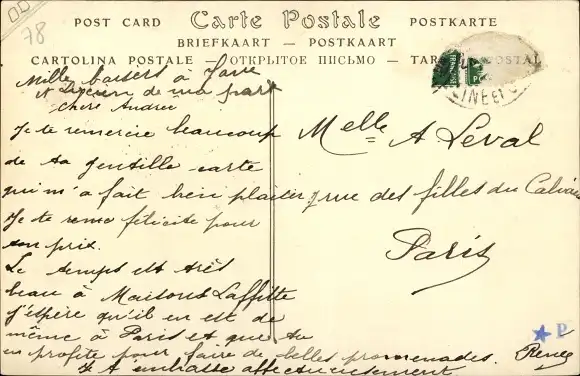 78
POST CARD Carte Postale POSTKARTE
BRIEFKAART — POSTKAART
CARTOLINA POSTALE — ОТКРЫТОЕ ПИСЬМО — TAR POSTAL
Mille baisers à
et Lucien de ma part
chère Andrée
Je te remercie beaucoup
de ta gentille carte
qui m'a fait bien plaisir
Je te félicite pour
ton prix.
Le temps est très
beau à Maisons Laffitte
J'espère qu'il en est de
même à Paris et que tu
en profite pour faire de belles promenades.
J t embrasse affectueusement
Renée
Melle A Leval
7 rue des filles du Calvaire
Paris
P